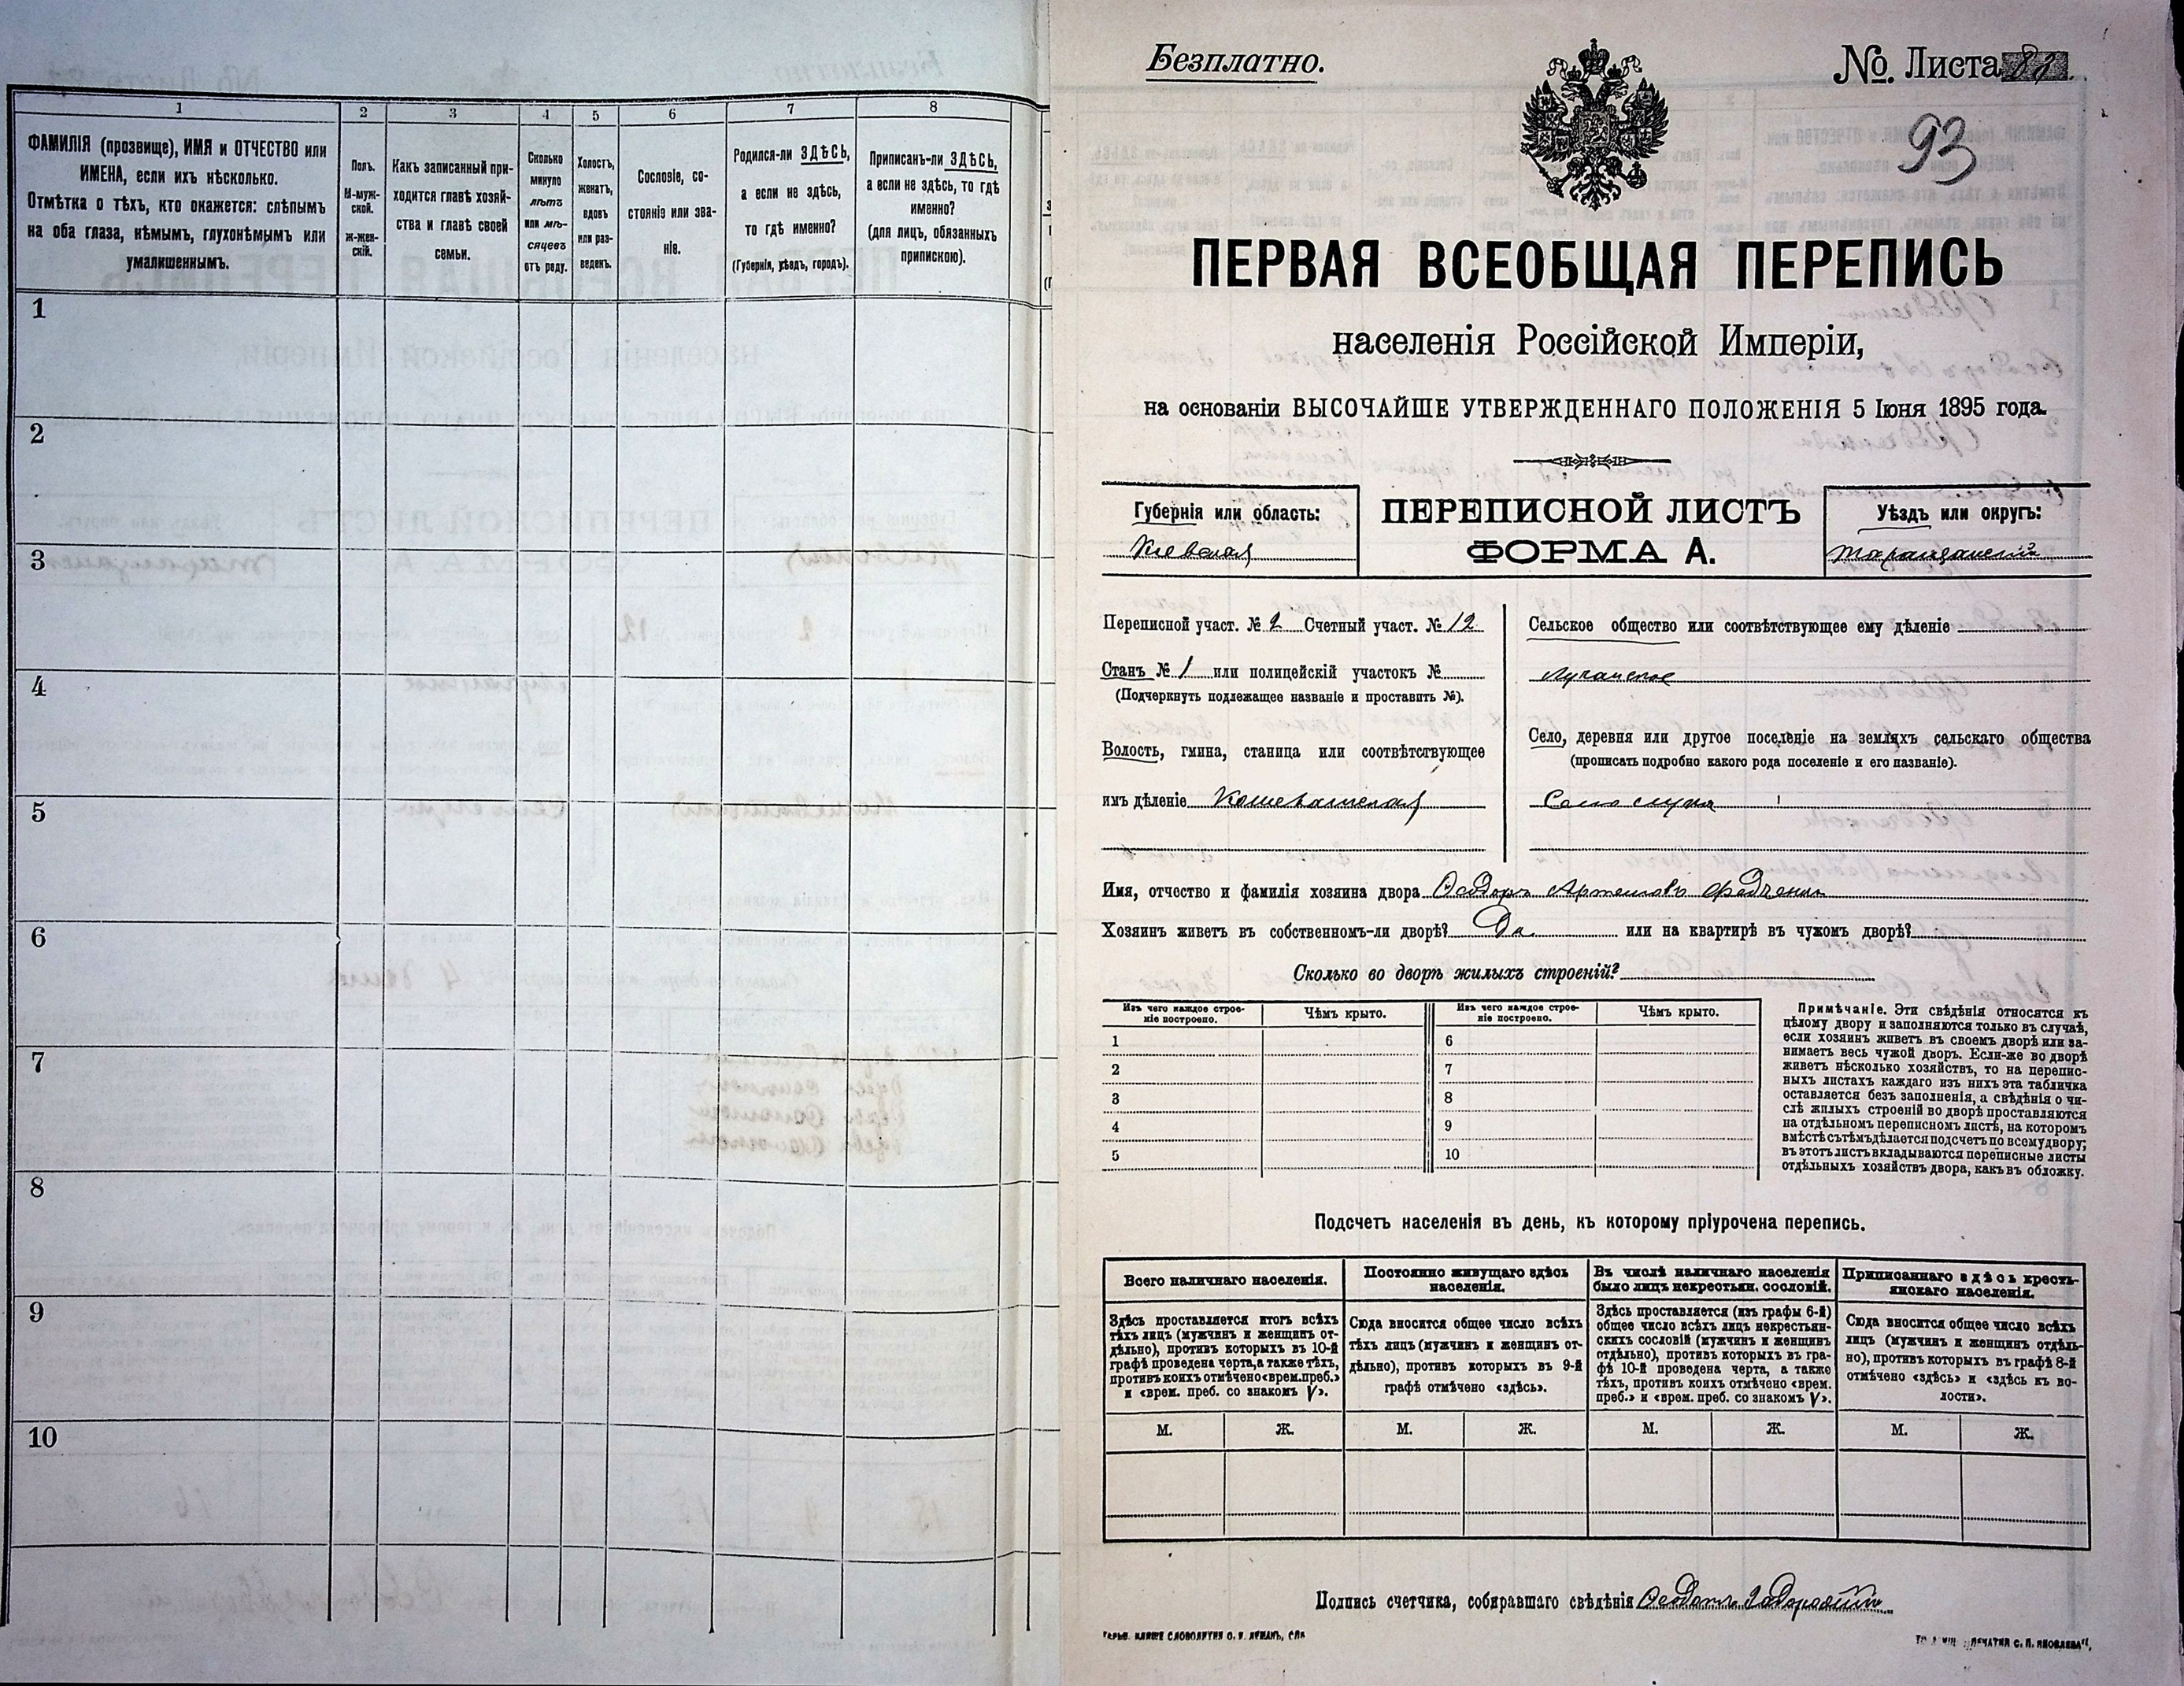 1
ФАМИЛІЯ (прозвище), ИМЯ и ОТЧЕСТВО или
ИМЕНА, если ихъ нѣсколько.
Отмѣтка о тѣхъ, кто окажется: слѣпымъ
на оба глаза, нѣмымъ, глухонѣмымъ или
умалишеннымъ.
2
Полъ.
М-муж-
ской.
ж-жен-
скій.
3
Какъ записанный при-
ходится главѣ хозяй-
ства и главѣ своей
семьи.
4
Сколько
минуло
лѣтъ
или мѣ-
сяцевъ
отъ роду.
5
Холостъ,
женатъ,
вдовъ
или раз-
веденъ.
6
Сословіе, со-
стояніе или зва-
ніе.
7
Родился-ли ЗДѢСЬ,
а если не здѣсь,
то гдѣ именно?
(Губернія, уѣздъ, городъ).
8
Приписанъ-ли ЗДѢСЬ,
а если не здѣсь, то гдѣ
именно?
(для лицъ, обязанныхъ
припискою).
1
2
3
4
5
6
7
8
9
10
Безплатно.
№ Листа
93
ПЕРВАЯ ВСЕОБЩАЯ ПЕРЕПИСЬ
населенія Россійской Имперіи,
на основаніи ВЫСОЧАЙШЕ УТВЕРЖДЕННАГО ПОЛОЖЕНІЯ 5 Іюня 1895 года.
Губернія или область:
Кіевская
ПЕРЕПИСНОЙ ЛИСТЪ
ФОРМА А.
Уѣздъ или округъ:
Таращанскій
Переписной участ. № 2 Счетный участ. № 12
Станъ № 1 или полицейскій участокъ №
(Подчеркнуть подлежащее названіе и проставить №).
Волость, гмина, станица или соотвѣтствующее
имъ дѣленіе Кошеватская
Сельское общество или соотвѣтствующее ему дѣленіе
Лучанское
Село, деревня или другое поселеніе на земляхъ сельскаго общества
(прописать подробно какого рода поселеніе и его названіе).
Село Лука
Имя, отчество и фамилія хозяина двора Ѳедоръ Артемовъ Федченко
Хозяинъ живетъ въ собственномъ-ли дворѣ? Да или на квартирѣ въ чужомъ дворѣ?
Сколько во дворѣ жилыхъ строеній?
Изъ чего каждое строе-
ніе построено.
Чѣмъ крыто.
Изъ чего каждое строе-
ніе построено.
Чѣмъ крыто.
1 6
2 7
3 8
4 9
5 10
Примѣчаніе. Эти свѣдѣнія относятся къ
цѣлому двору и заполняются только въ случаѣ,
если хозяинъ живетъ въ своемъ дворѣ или за-
нимаетъ весь чужой дворъ. Если-же во дворѣ
живетъ нѣсколько хозяйствъ, то на перепис-
ныхъ листахъ каждаго изъ нихъ эта табличка
оставляется безъ заполненія, а свѣдѣнія о чи-
слѣ жилыхъ строеній во дворѣ проставляются
на отдѣльномъ переписномъ листѣ, на которомъ
вмѣстѣ съ тѣмъ дѣлается подсчетъ по всему двору;
въ этотъ листъ вкладываются переписные листы
отдѣльныхъ хозяйствъ двора, какъ въ обложку.
Подсчетъ населенія въ день, къ которому пріурочена перепись.
Всего наличнаго населенія.
Здѣсь проставляется итогъ всѣхъ
тѣхъ лицъ (мужчинъ и женщинъ от-
дѣльно), противъ которыхъ въ 10-й
графѣ проведена черта, а также тѣхъ,
противъ коихъ отмѣчено «врем. преб.»
и «врем. преб. со знакомъ V».
Постоянно живущаго здѣсь
населенія.
Сюда вносится общее число всѣхъ
тѣхъ лицъ (мужчинъ и женщинъ от-
дѣльно), противъ которыхъ въ 9-й
графѣ отмѣчено «здѣсь».
Въ числѣ наличнаго населенія
было лицъ некрестьян. сословій.
Здѣсь проставляется (изъ графы 6-й)
общее число всѣхъ лицъ некрестьян-
скихъ сословій (мужчинъ и женщинъ
отдѣльно), противъ которыхъ въ гра-
фѣ 10-й проведена черта, а также
тѣхъ, противъ коихъ отмѣчено «врем.
преб.» и «врем. преб. со знакомъ V».
Приписаннаго здѣсь кресть-
янскаго населенія.
Сюда вносится общее число всѣхъ
лицъ (мужчинъ и женщинъ отдѣль-
но), противъ которыхъ въ графѣ 8-й
отмѣчено «здѣсь» и «здѣсь къ во-
лости».
М. Ж. М. Ж. М. Ж. М. Ж.
Подпись счетчика, собиравшаго свѣдѣнія
СЛОВОЛИТНЯ О. И. ЛЕМАНЪ, СПБ
С. П. ЯКОВЛЕВА